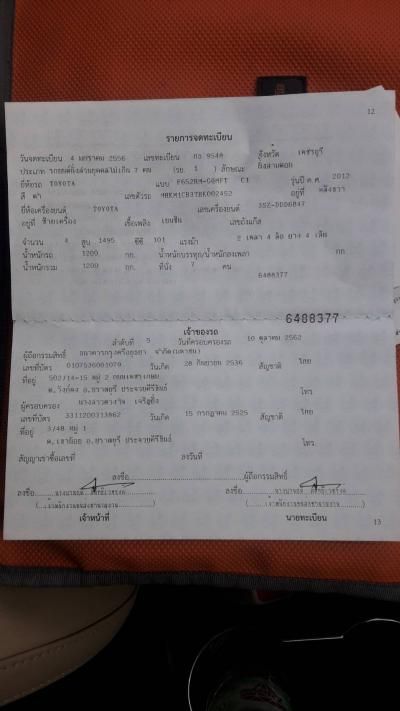 12
รายการจดทะเบียน
วันจดทะเบียน 4 มกราคม 2556 เลขทะเบียน กง 9548 จังหวัด เพชรบุรี
ประเภท รถยนต์นั่งส่วนบุคคลไม่เกิน 7 คน (รย. 1 ) ลักษณะ นั่งสามตอน
ยี่ห้อรถ TOYOTA แบบ รุ่นปี ค.ศ. 2012
สี ดำ เลขตัวรถ อยู่ที่
ยี่ห้อเครื่องยนต์ TOYOTA เลขเครื่องยนต์ 3SZ-DDD6847
อยู่ที่ ซ้ายเครื่อง เชื้อเพลิง เบนซิน เลขถังแก๊ส
จำนวน 4 สูบ 1495 ซีซี 101 แรงม้า 2 เพลา 4 ล้อ ยาง 4 เส้น
น้ำหนักรถ 1200 กก. น้ำหนักบรรทุก/น้ำหนักลงเพลา กก
น้ำหนักรวม 1200 กก. ที่นั่ง 7 คน
6488377
6488377
เจ้าของรถ
ลำดับที่ 5 วันที่ครอบครองรถ 10 ตุลาคม 2562
ผู้ถือกรรมสิทธิ์ ธนาคารกรุงศรีอยุธยา จำกัด(มหาชน)
เลขที่บัตร 0107536001079 วันเกิด 28 กันยายน 2536 สัญชาติ ไทย
ที่อยู่ 502/14-15 หมู่ 2 ถนนเพชรเกษม
ต.วังก์พง อ.ปราณบุรี ประจวบคีรีขันธ์ โทร.
ผู้ครอบครอง
เลขที่บัตร 3311200313862 วันเกิด 15 กรกฎาคม 2525 สัญชาติ ไทย
ที่อยู่ 3/48 หมู่ 1
ต.เขาน้อย อ.ปราณบุรี ประจวบคีรีขันธ์ โทร.
สัญญาเช่าซื้อเลขที่ ลงวันที่
ลงชื่อ ผู้ถือกรรมสิทธิ์
ลงชื่อ ลงชื่อ
เจ้าหน้าที่ นายทะเบียน
13